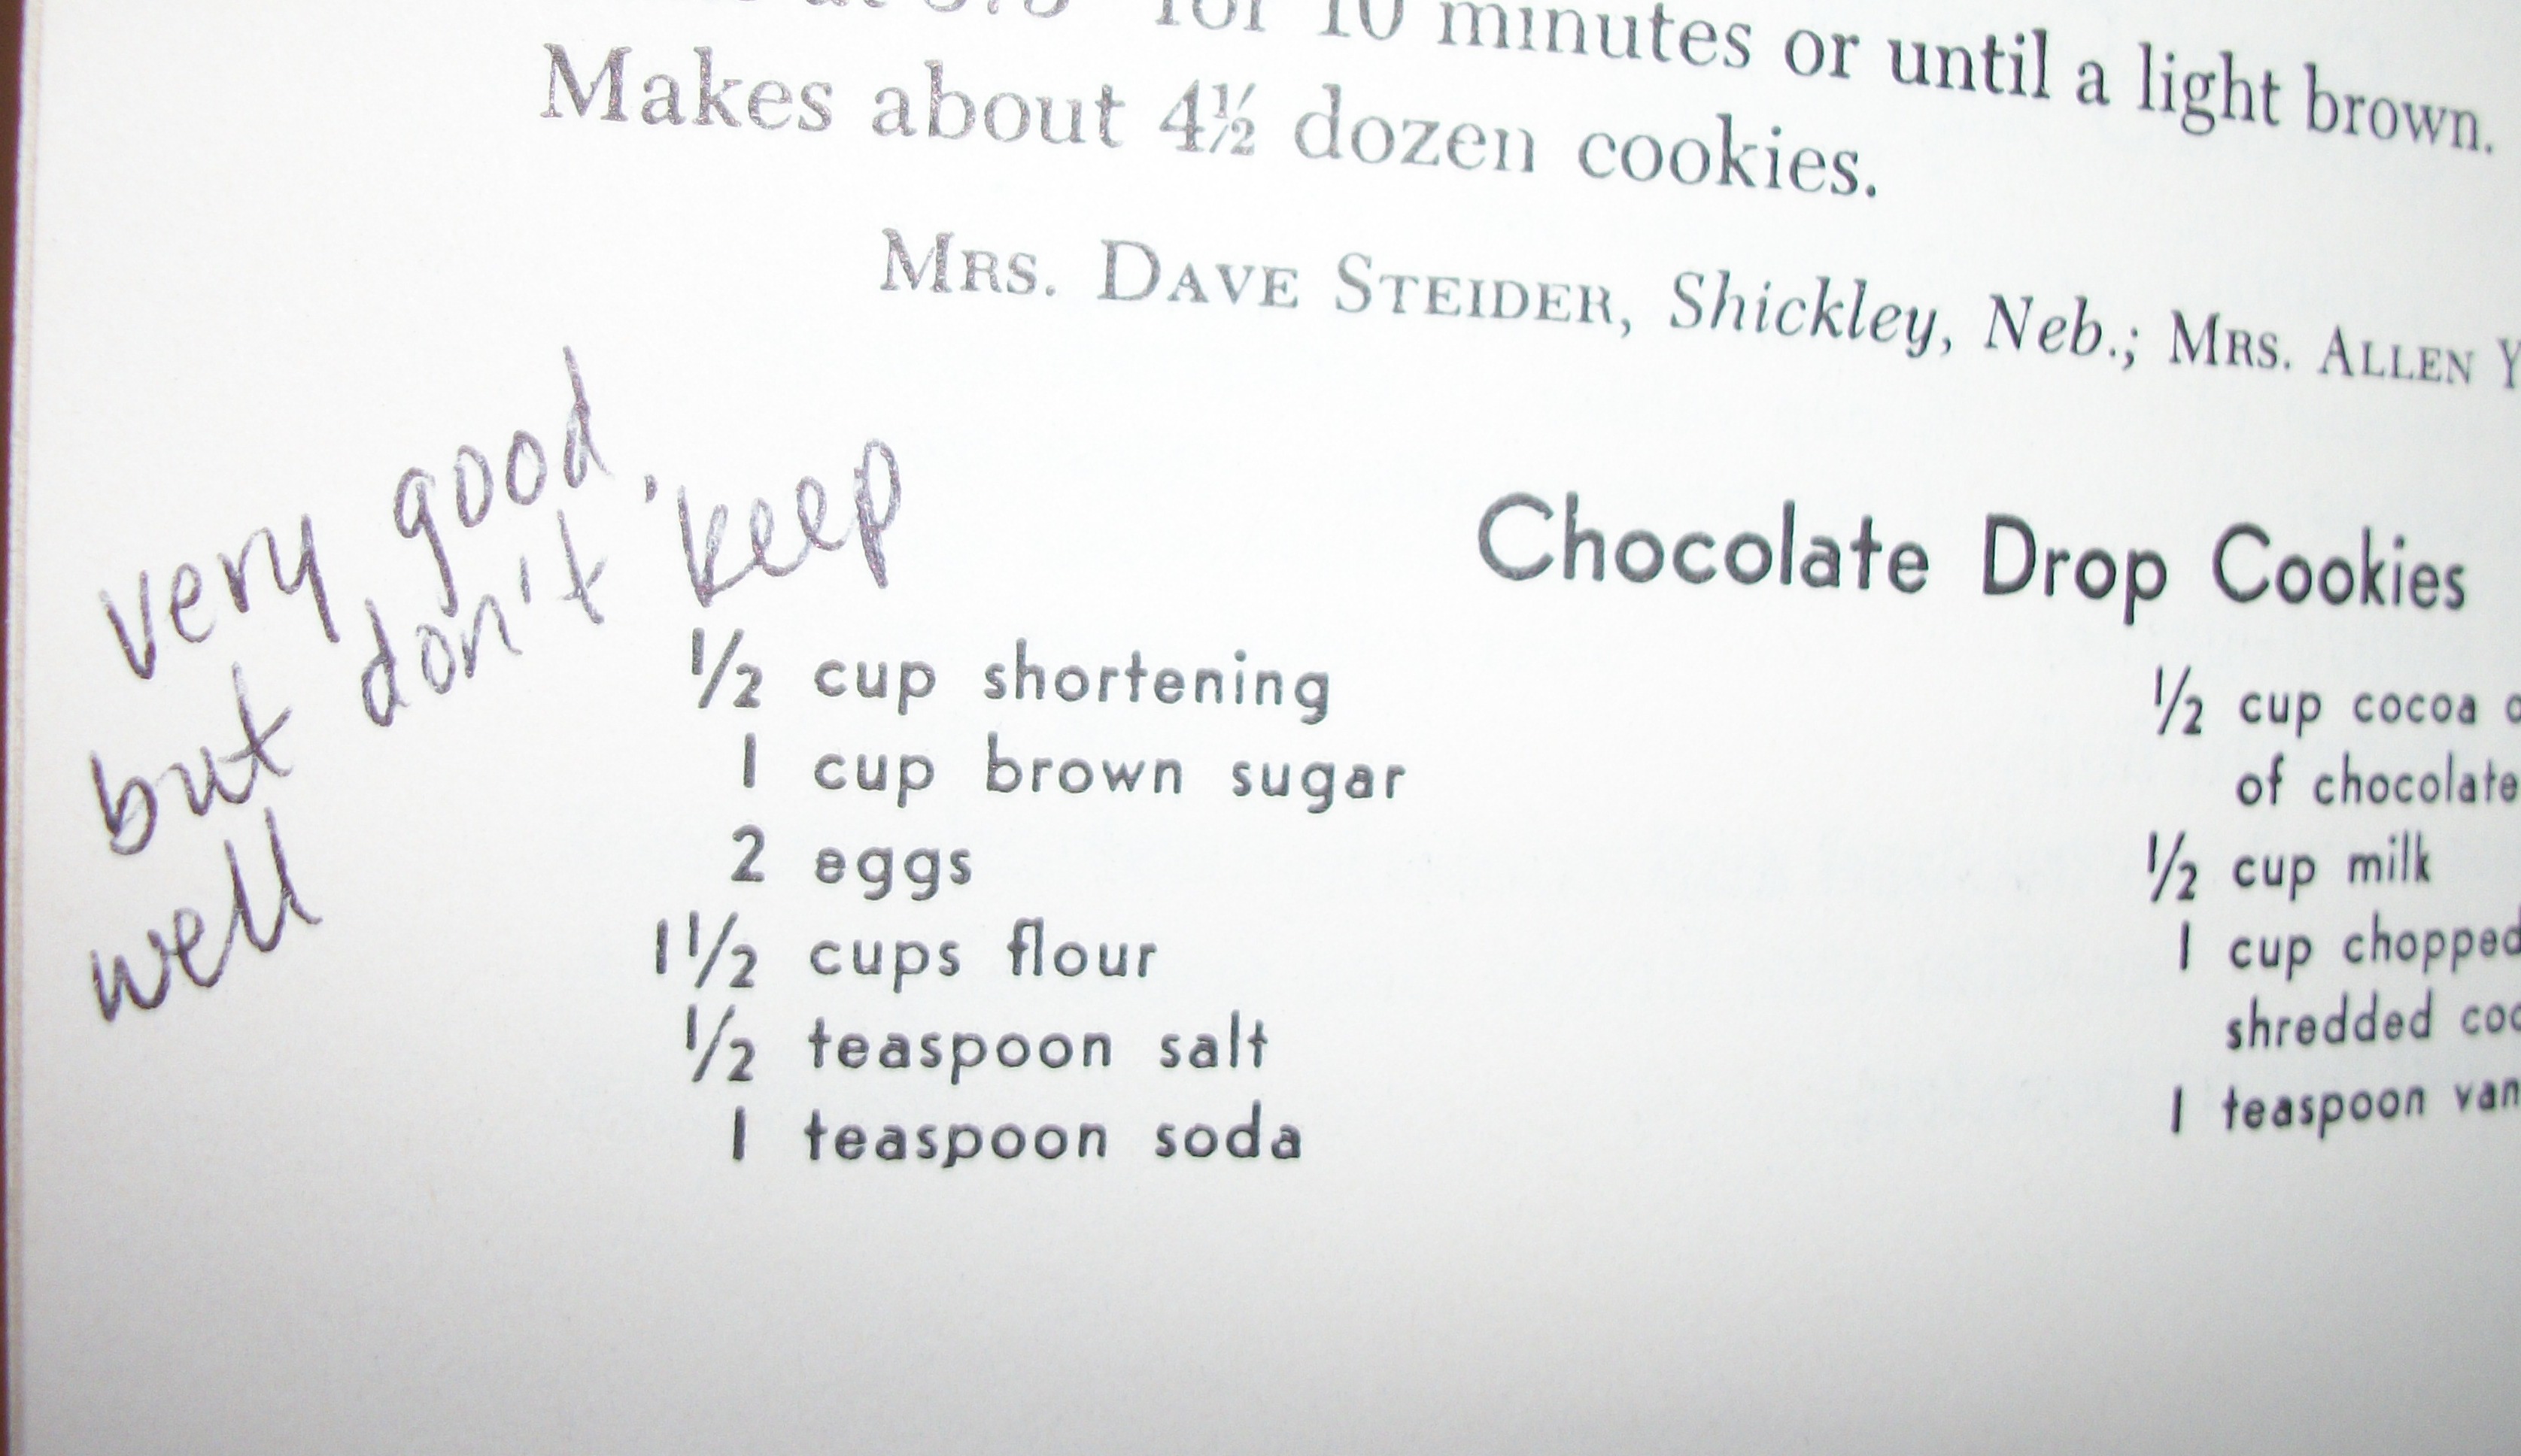 for 10 minutes or until a light brown.
Makes about 4½ dozen cookies.
MRS. DAVE STEIDER, Shickley, Neb.; MRS. ALLEN
very good,
but don't keep
well
Chocolate Drop Cookies
½ cup shortening
1 cup brown sugar
2 eggs
1½ cups flour
½ teaspoon salt
1 teaspoon soda
½ cup cocoa
of chocolate
½ cup milk
1 cup chopped
shredded
1 teaspoon